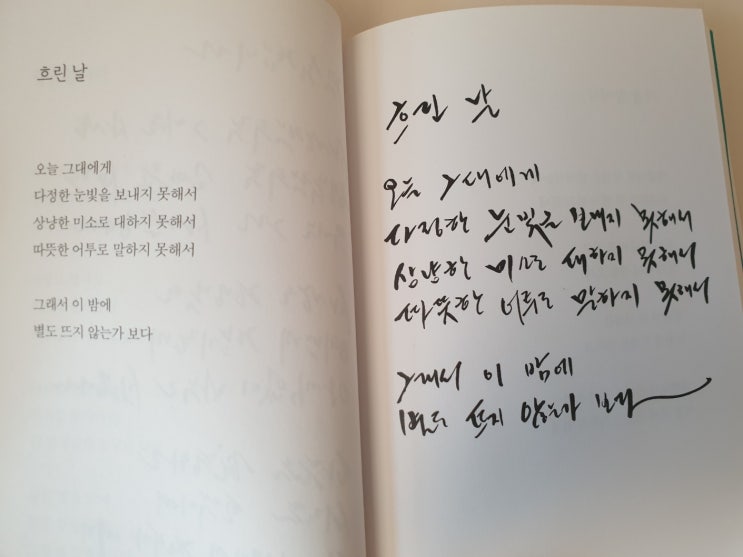 흐린 날
오늘 그대에게
다정한 눈빛을 보내지 못해서
상냥한 미소로 대하지 못해서
따뜻한 어투로 말하지 못해서
그래서 이 밤에
별도 뜨지 않는가 보다
흐린 날
오늘 그대에게
다정한 눈빛을 보내지 못해서
상냥한 미소로 대하지 못해서
따뜻한 어투로 말하지 못해서
그래서 이 밤에
별도 뜨지 않는가 보다